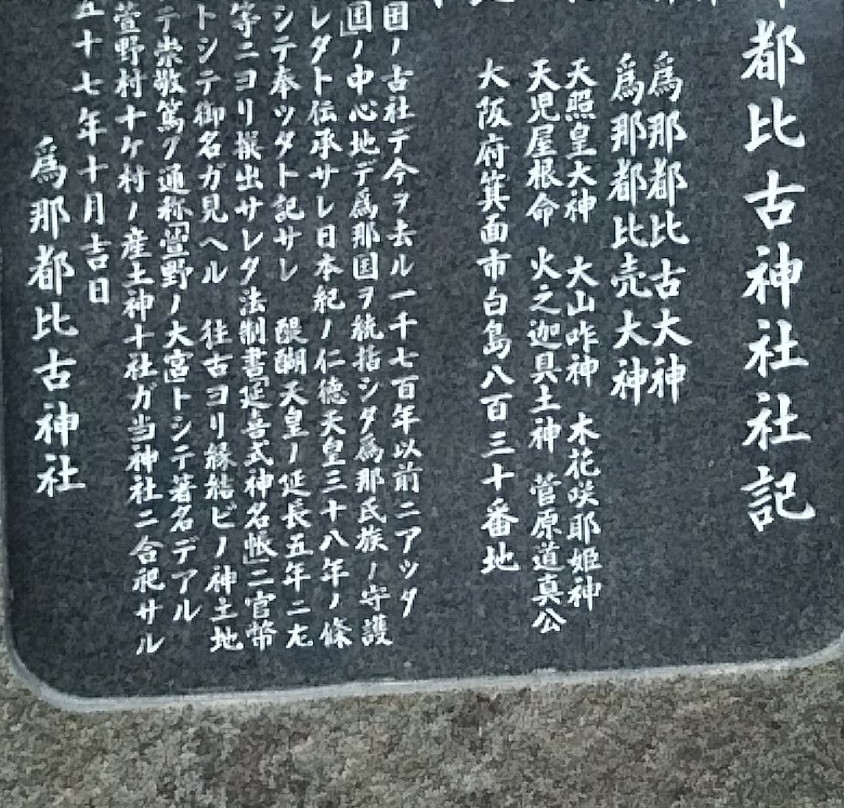 都比古神社社記
爲那都比古大神
爲那都比売大神
天照皇大神 大山咋神 木花咲耶姫神
天児屋根命 火之迦具土神 菅原道真公
大阪府箕面市白島八百三十番地
国ノ古社デ今ヲ去ル一千七百年以前ニアッタ
国」ノ中心地デ爲那国ヲ統括シタ爲那氏族ノ守護
レタト伝承サレ日本紀ノ仁徳天皇三十八年ノ條
シテ奉ッタト記サレ 醍醐天皇ノ延長五年ニ左
等ニヨリ撰出サレタ法制書「延喜式神名帳」ニ官幣
トシテ御名ガ見ヘル 往古ヨリ縁結ビノ神土地
テ崇敬篤ク通称「萱野ノ大宮」トシテ著名デアル
萱野村十ケ村ノ産土神十社ガ当神社ニ合祀サル
五十七年十月吉日
爲那都比古神社